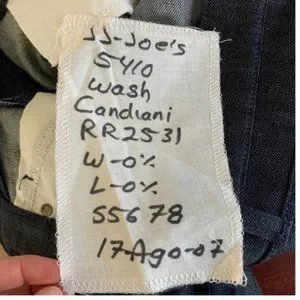 JJ-Joe's
5410
Wash
Candiani
RR2531
W-0%
L-0%
55678
17-Ago-07